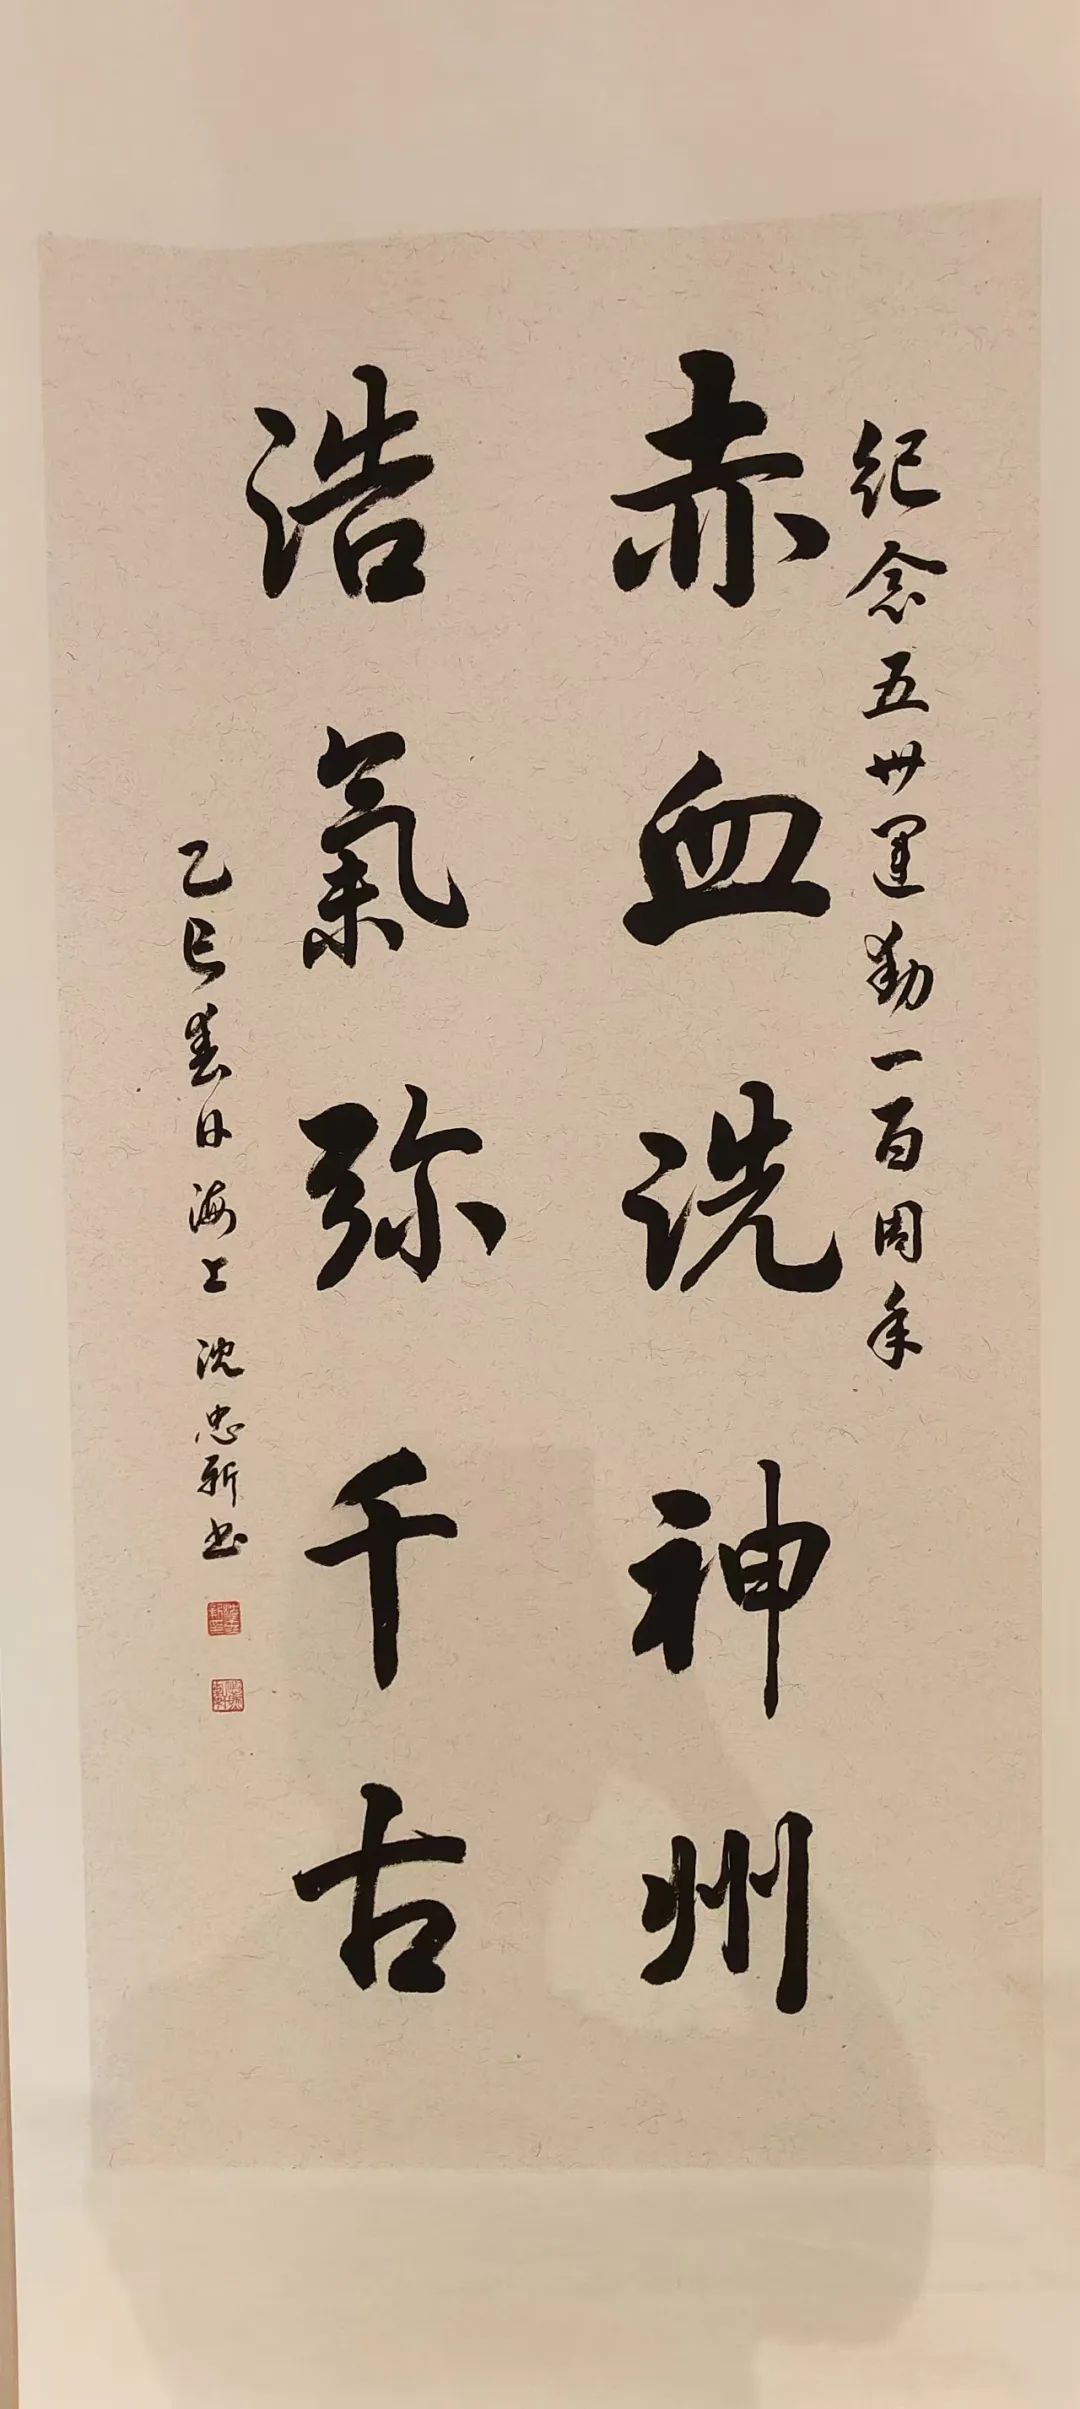 纪念五卅運動一百周年
赤血洗神州
浩氣弥千古
乙巳春日海上沈忠新书